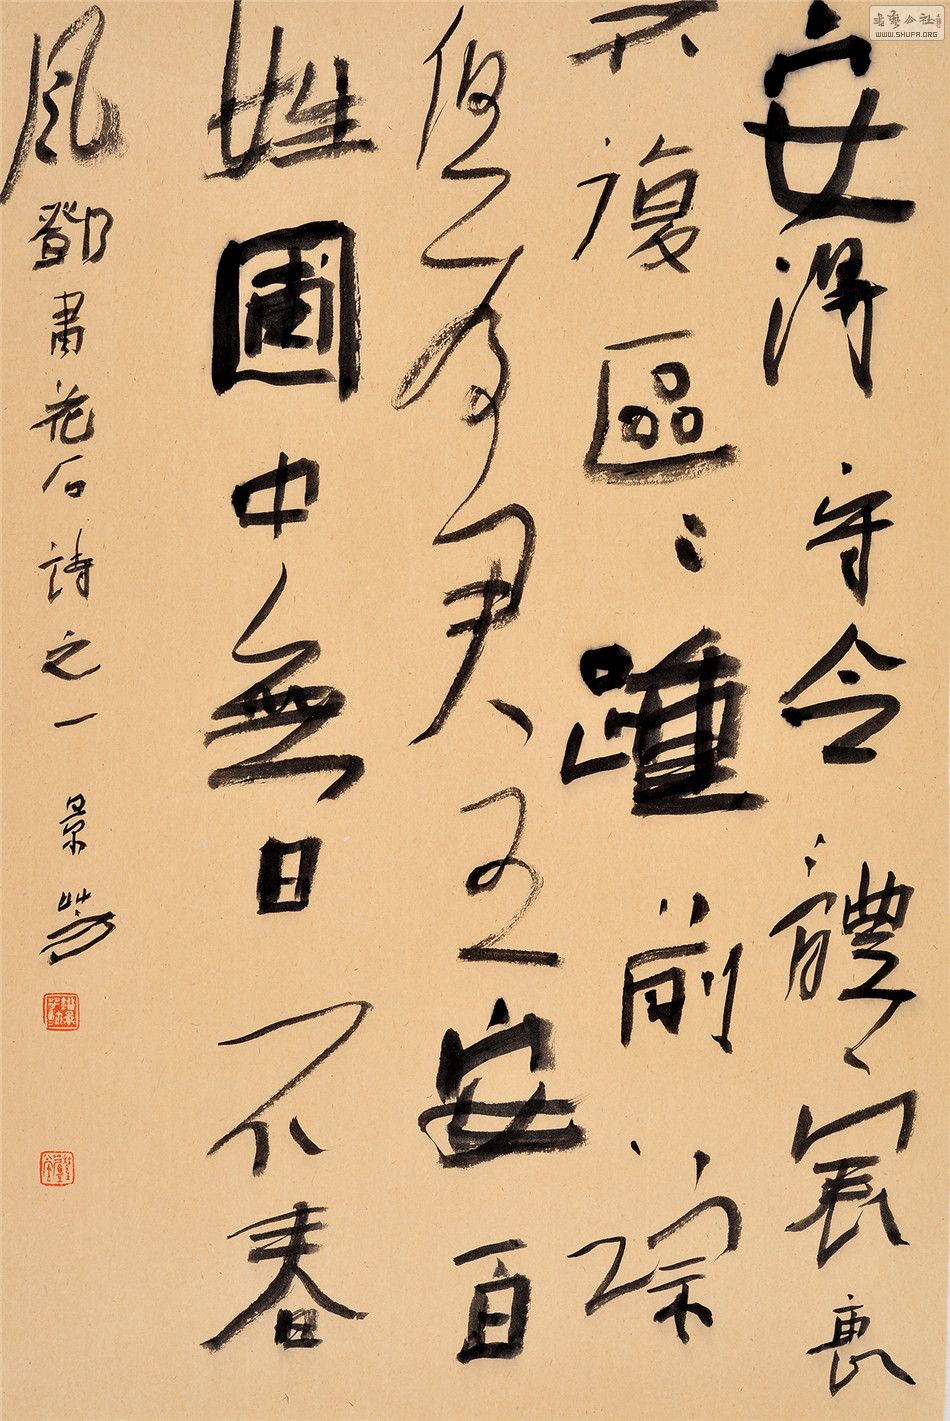 安得守令體宸衷
不復區〻踵前踪
但為君王安百
姓圃中無日不春
風 鄧肅花石詩之一 景芳
书艺公社
WWW.SHUFA.ORG